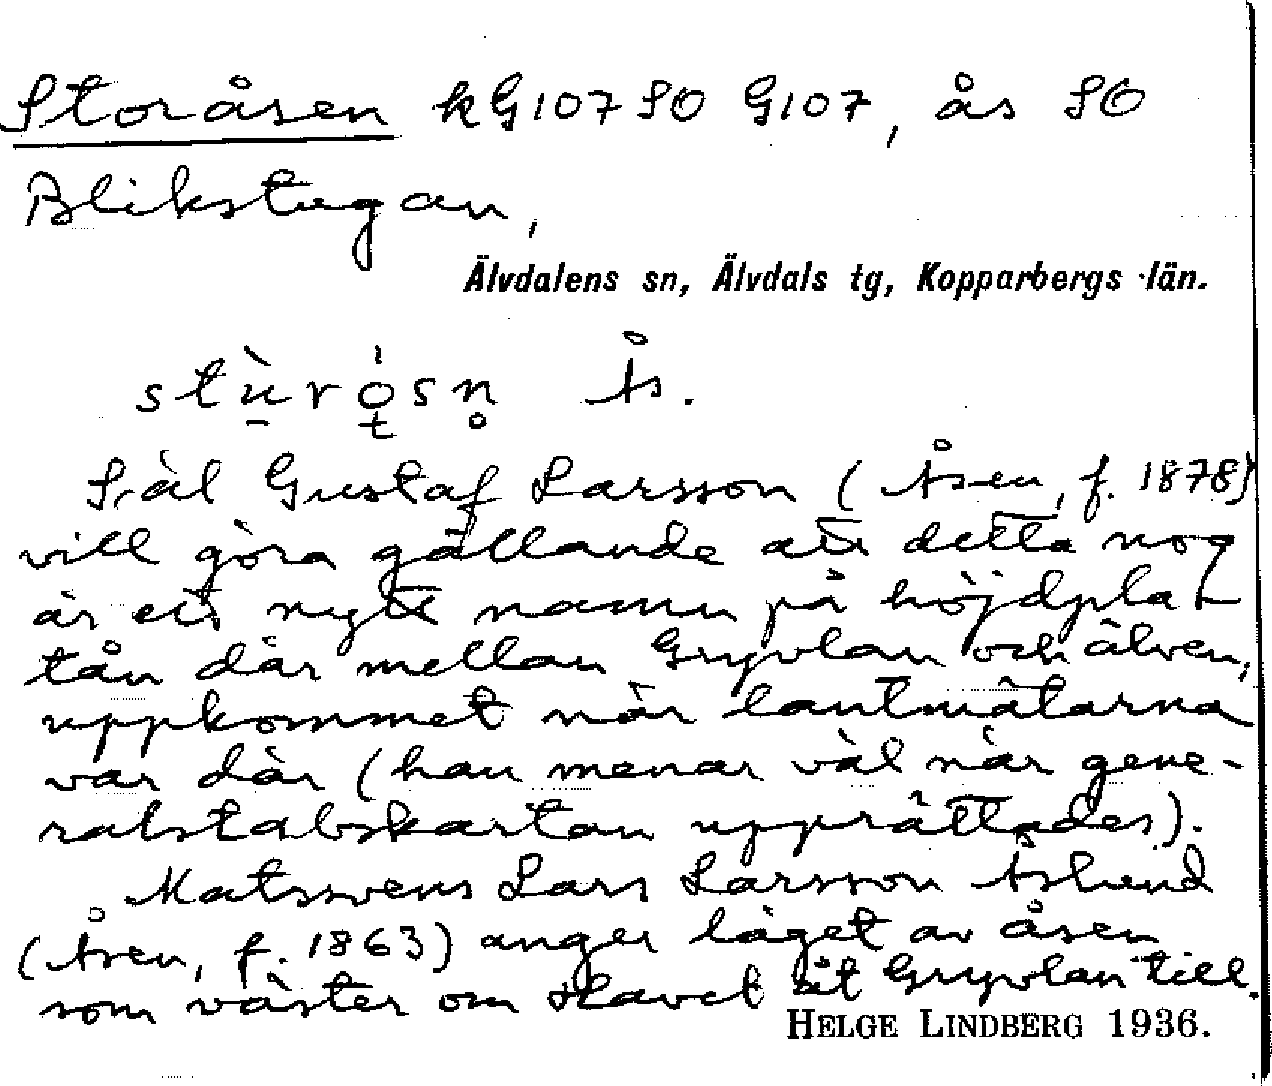 Storåsen kG107SO G107, ås SO
Blikstugan,
Älvdalens sn, Älvdals tg, Kopparbergs län.
Ås.
Gustaf Larsson (Åsen, f. 1878)
vill göra gällande att detta nog
är ett nytt namn på höjdpla-
tån där mellan Gryvlan och älven,
uppkommet när lantmätarna
var där (han menar väl när gene-
ralstabskartan upprättades).
Matssvens Lars Larsson Åslund
(Åsen, f. 1863) anger läget av åsen
som väster om Havet åt Gryvlan till.
HELGE LINDBERG 1936.